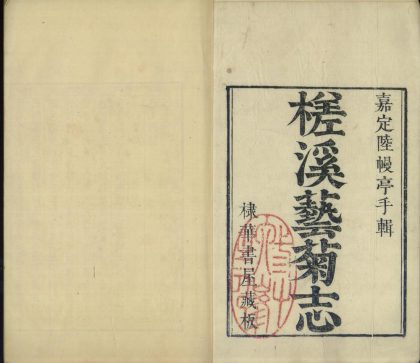 嘉定陸幔亭手輯
槎溪藝菊志
棣華書屋藏板